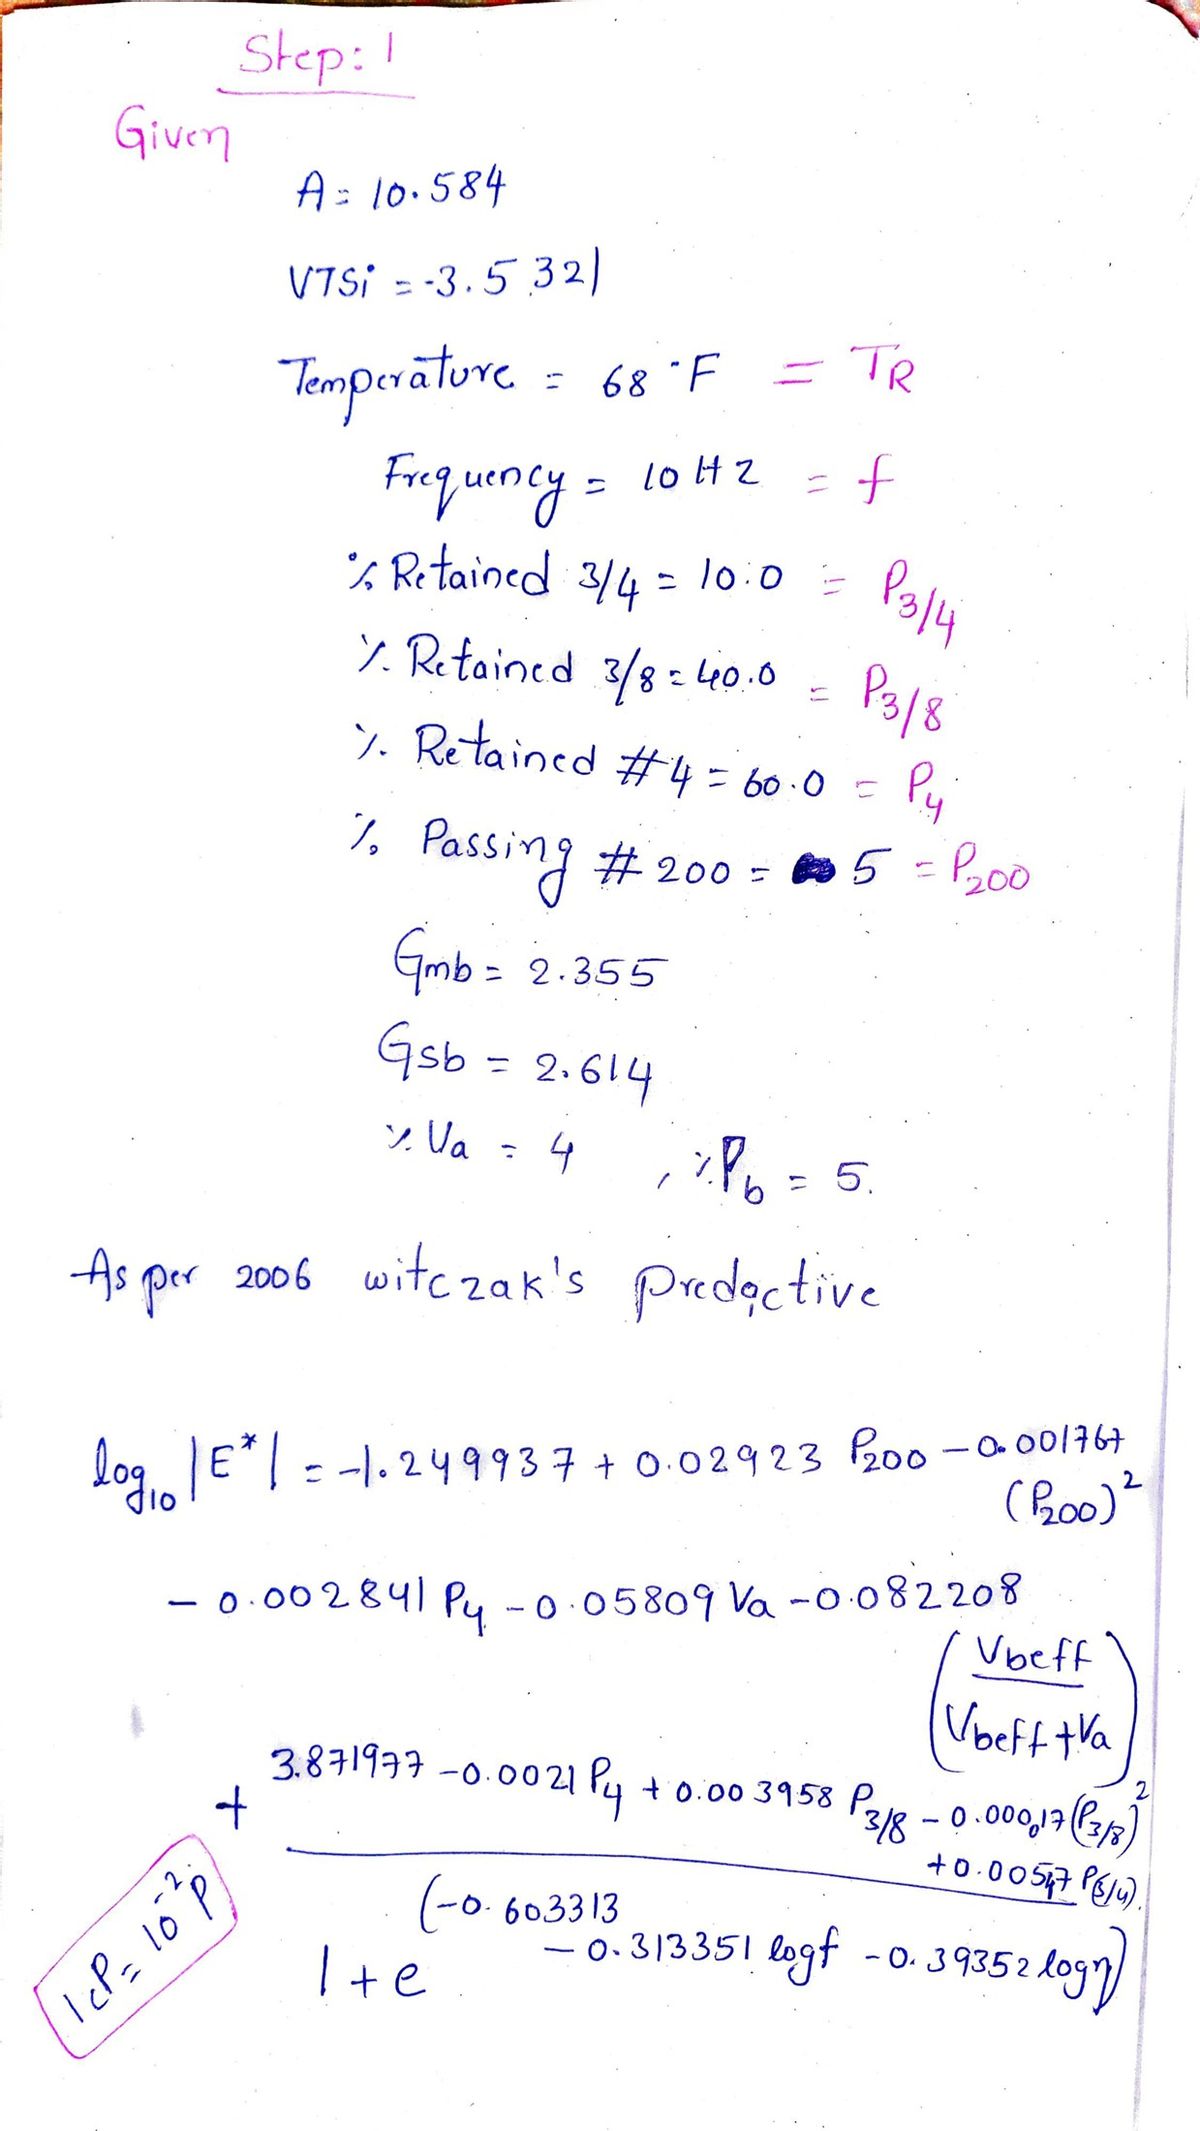 Step: 1
Given
A = 10.584
VTSi = -3.5321
Temperature = 68 °F = TR
Frequency = 10 HZ = f
% Retained 3/4 = 10.0 = P3/4
% Retained 3/8 = 40.0 = P3/8
% Retained #4 = 60.0 = P4
% Passing # 200 = 5 = P200
Gmb = 2.355
Gsb = 2.614
% Va = 4 , % Pb = 5.
As per 2006 witczak's predactive
log10 |E*| = -1.249937 + 0.02923 P200 - 0.001767
(P200)²
- 0.002841 P4 - 0.05809 Va - 0.082208
(Vbeff
Vbeff + Va)
+ 3.871977 - 0.0021 P4 + 0.003958 P3/8 - 0.000017 (P3/8)²
+ 0.00547 P(3/4)
1 + e (-0.603313
- 0.313351 logf - 0.39352 logη)
1 cP = 10⁻² P